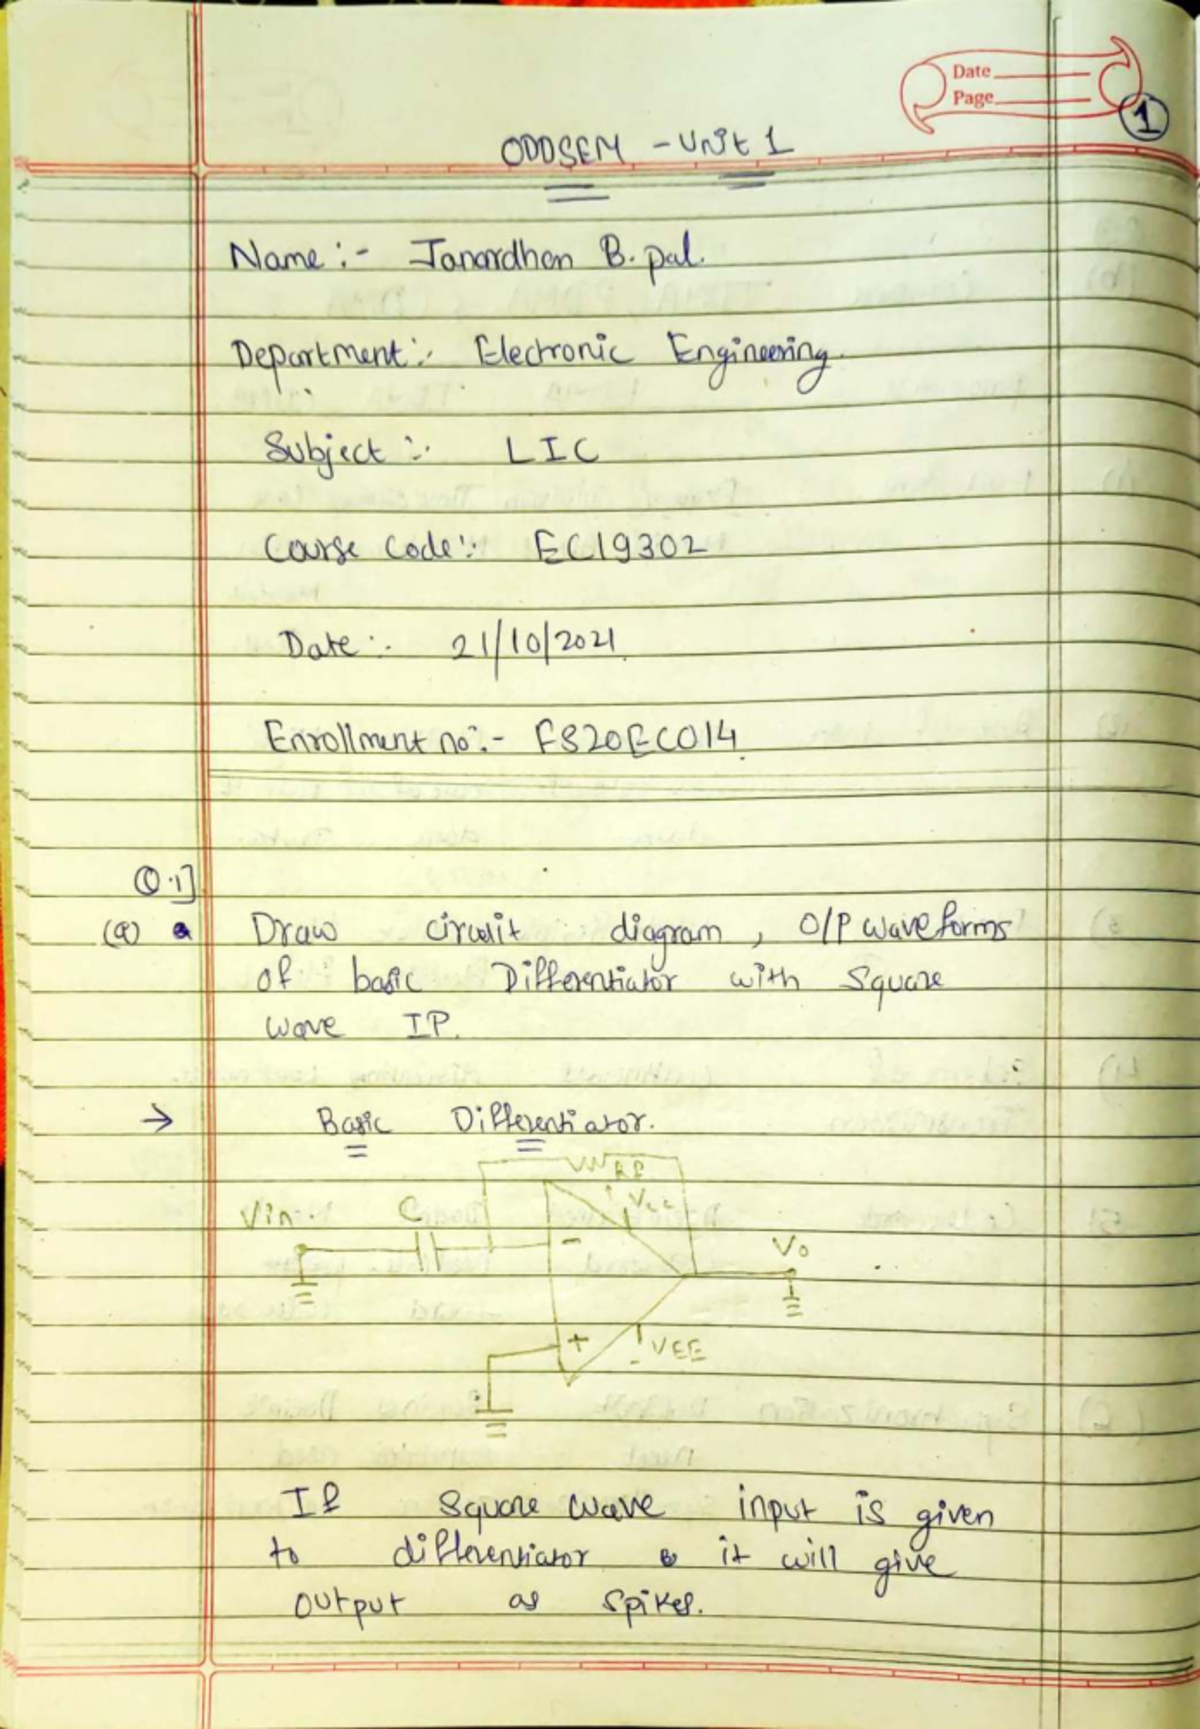 Date
Page
1
ODDSEM - Unit 1
Name :- Janardhan B. pal.
Department :- Electronic Engineering
Subject :- LIC
Course Code :- EC19302
Date :- 21/10/2021.
Enrollment no :- FS20EC014.
Q.1]
(a) Draw circuit diagram, O/P waveforms
of basic Differentiator with Square
wave IP.
→ Basic Differentiator.
RF
Vcc
Vin
C
-
Vo
+
- VEE
If Square wave input is given
to differentiator it will give
output as spikes.